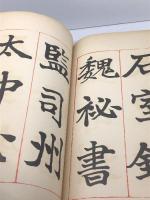 石室
魏秘書
監司州
太中